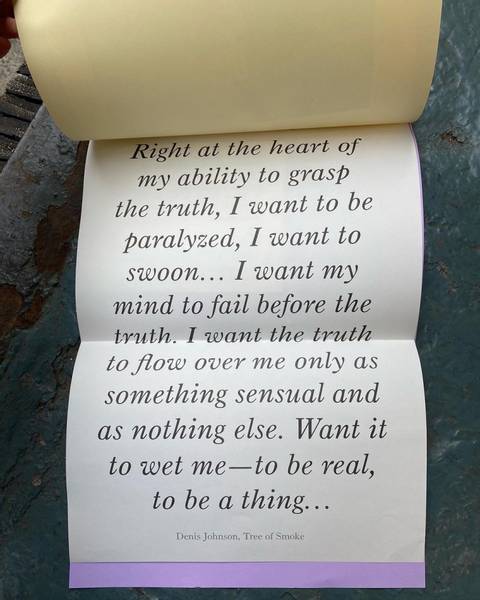 Right at the heart of
my ability to grasp
the truth, I want to be
paralyzed, I want to
swoon... I want my
mind to fail before the
truth. I want the truth
to flow over me only as
something sensual and
as nothing else. Want it
to wet me—to be real,
to be a thing...
Denis Johnson, Tree of Smoke